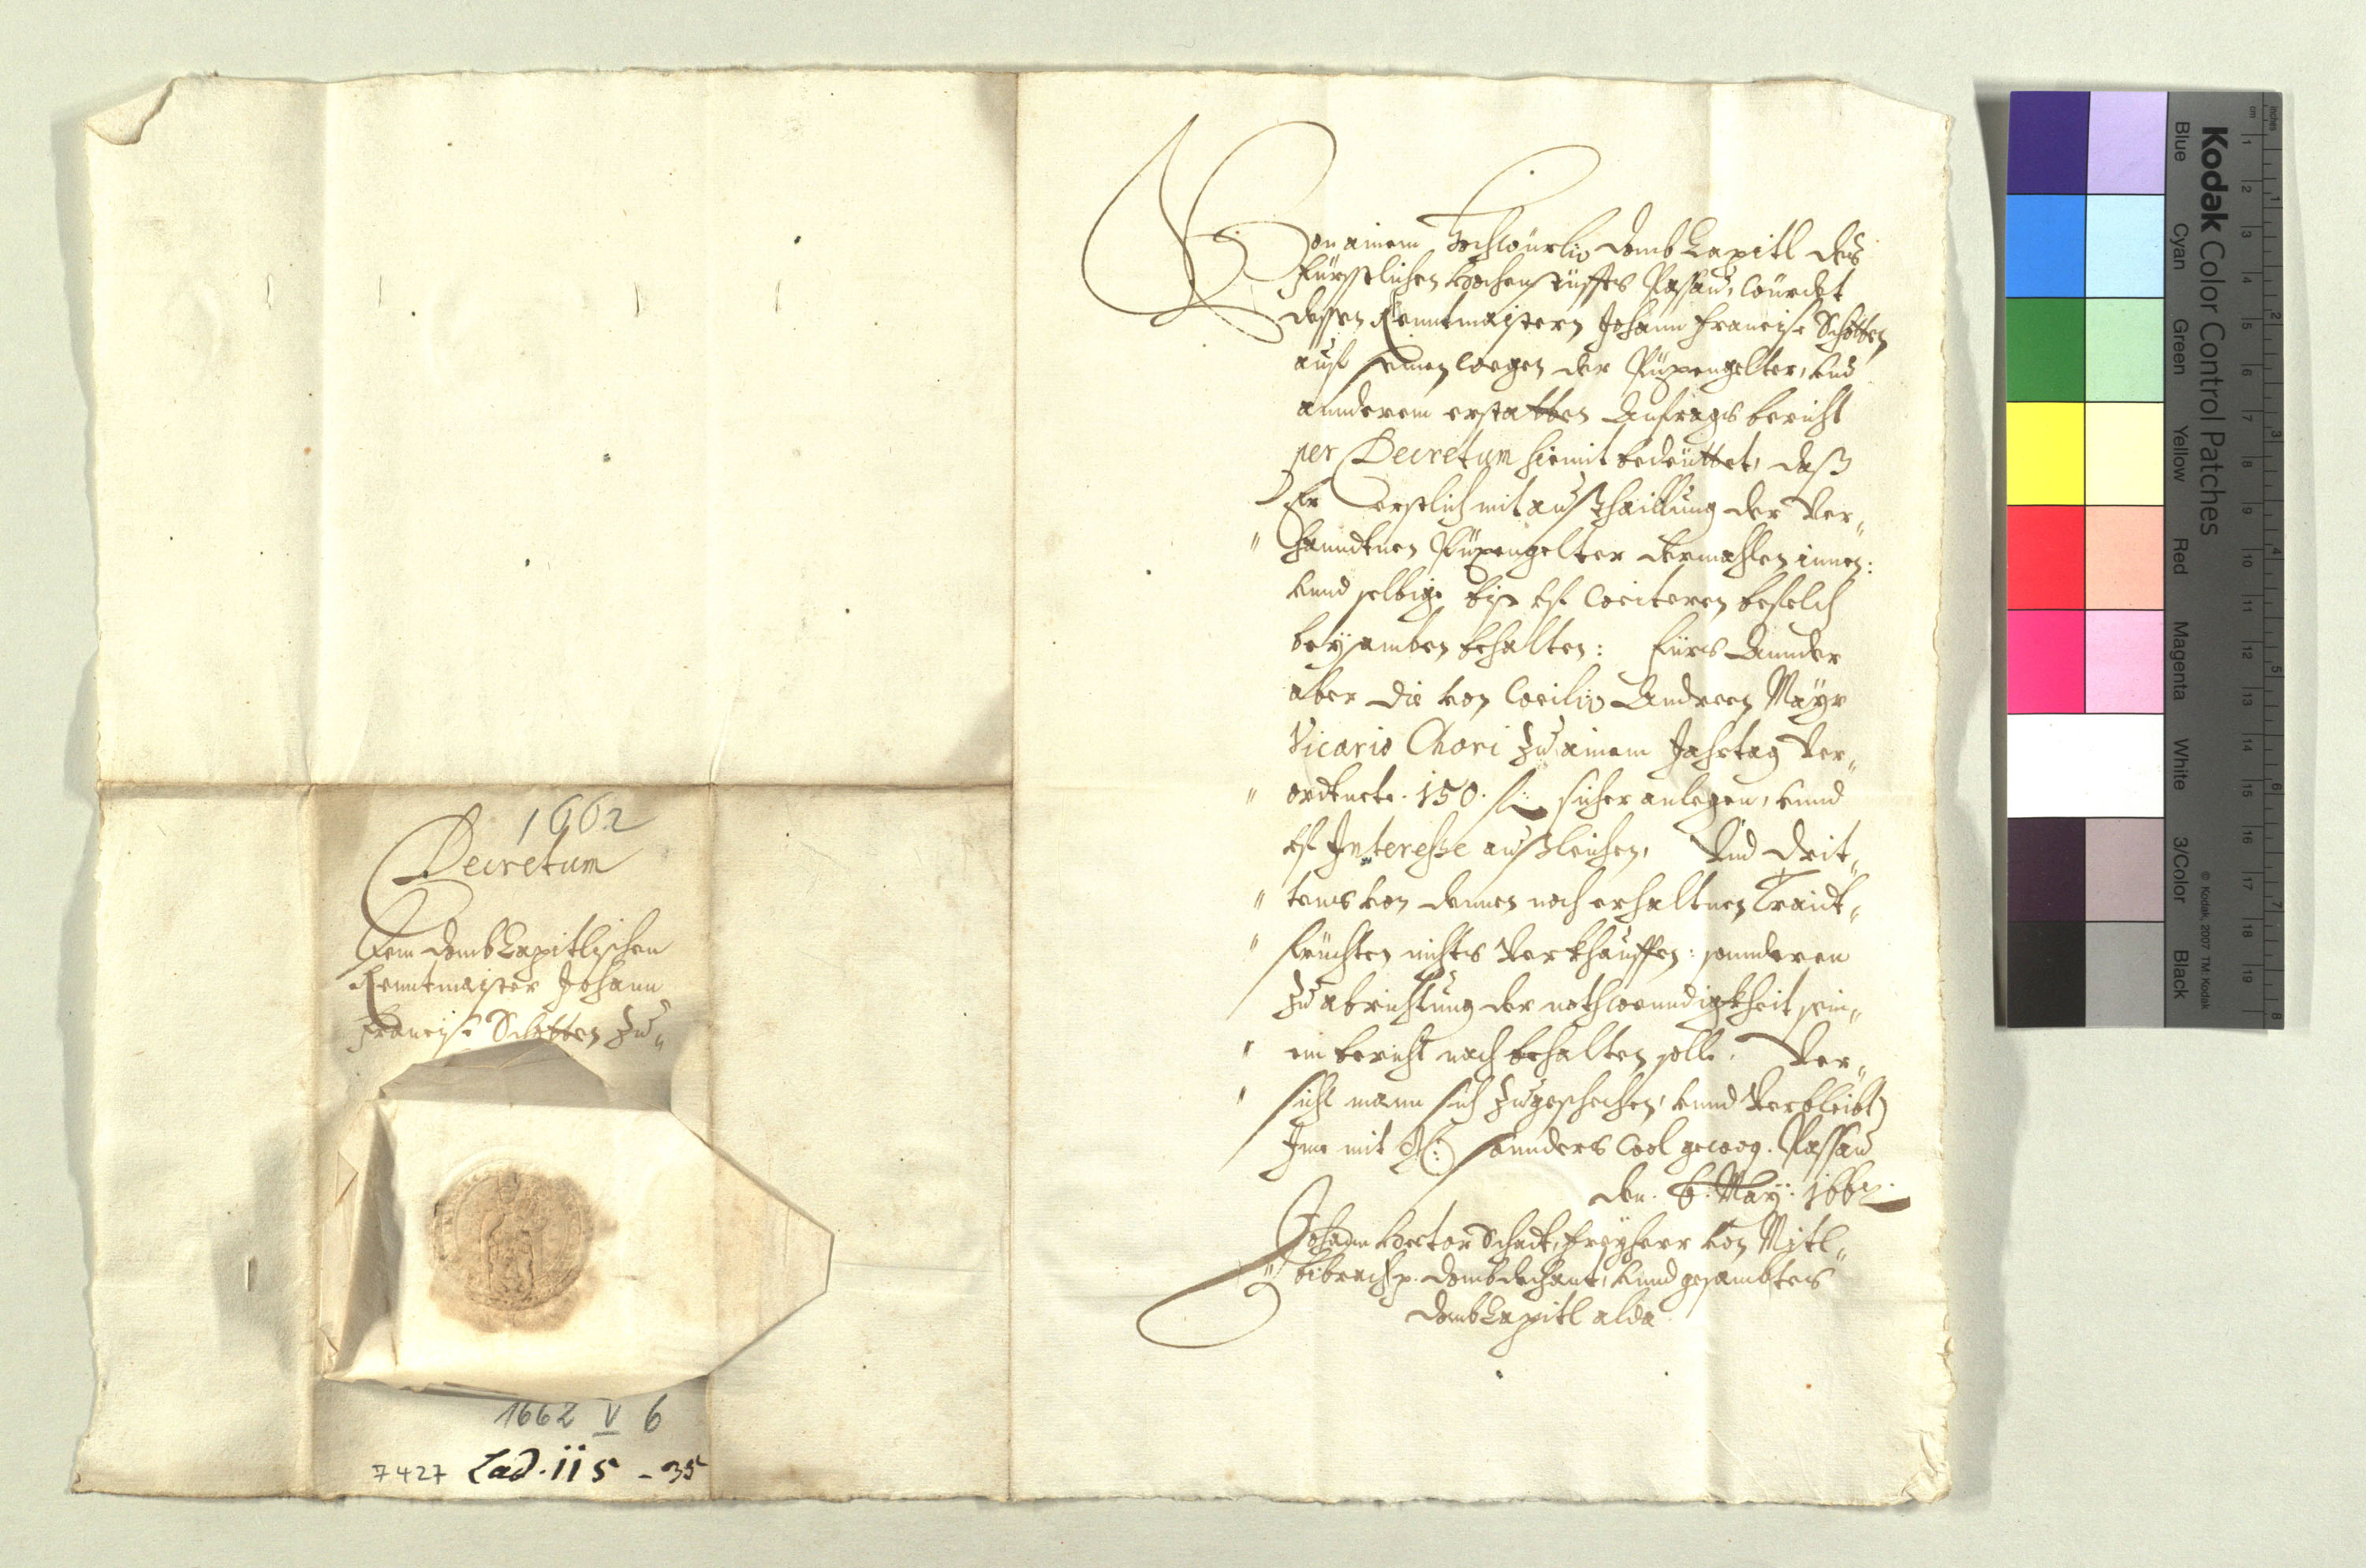 1662
Decretum
Dem DombCapitlischen
Renntmaister Johann
Francisc Schotten zu„
1662 V 6
7427 Lad. 115 - 35
Von ainem Hochwürdig DombCapitl des
Fürstlichen Hochenstüffts Passau, würdet
dessen Renntmaistern Johann Francisc Schotten
auf seinen wegen der Püxengelter, und
annderem erstatten Anfrags bericht
per Decretum hiemit bedeuttet, daß
Er Erstlich mit außthaillung der ver„
„ hanndtnen Püxengelter dermahlen innen:
unnd selbige biß uf weiteren befelch
beysamben behalten: Fürs Annder
aber die von weilig Andreen Mayr
Vicario Chori zu ainem Jahrtag ver„
„ ordtnete 150 f: sicher anlegen, unnd
uf Interesse außleichen, Und drit„
„ tens von denen noch erhaltnen Traidt„
„ früchten nichts verkhauffen: sonnderen
zu abrichtung der nothwenndigkheit sein„
„ en bericht nach behalten solle. Ver„
„ sicht mann sich zugeschechen, unnd verbleibt
Ime mit sonnders wol gewog. Passau
den. 6. May: 1662.
Johann Hector Schadt, Freyherr von Mitl„
„ bibrach p. Dombdechant, unnd gesambtes
DombCapitl alda
Kodak Color Control Patches
Blue Cyan Green Yellow Red Magenta White 3/Color Black
© Kodak, 2007 TM: Kodak
inches 1 2 3 4 5 6 7 8
cm 1 2 3 4 5 6 7 8 9 10 11 12 13 14 15 16 17 18 19